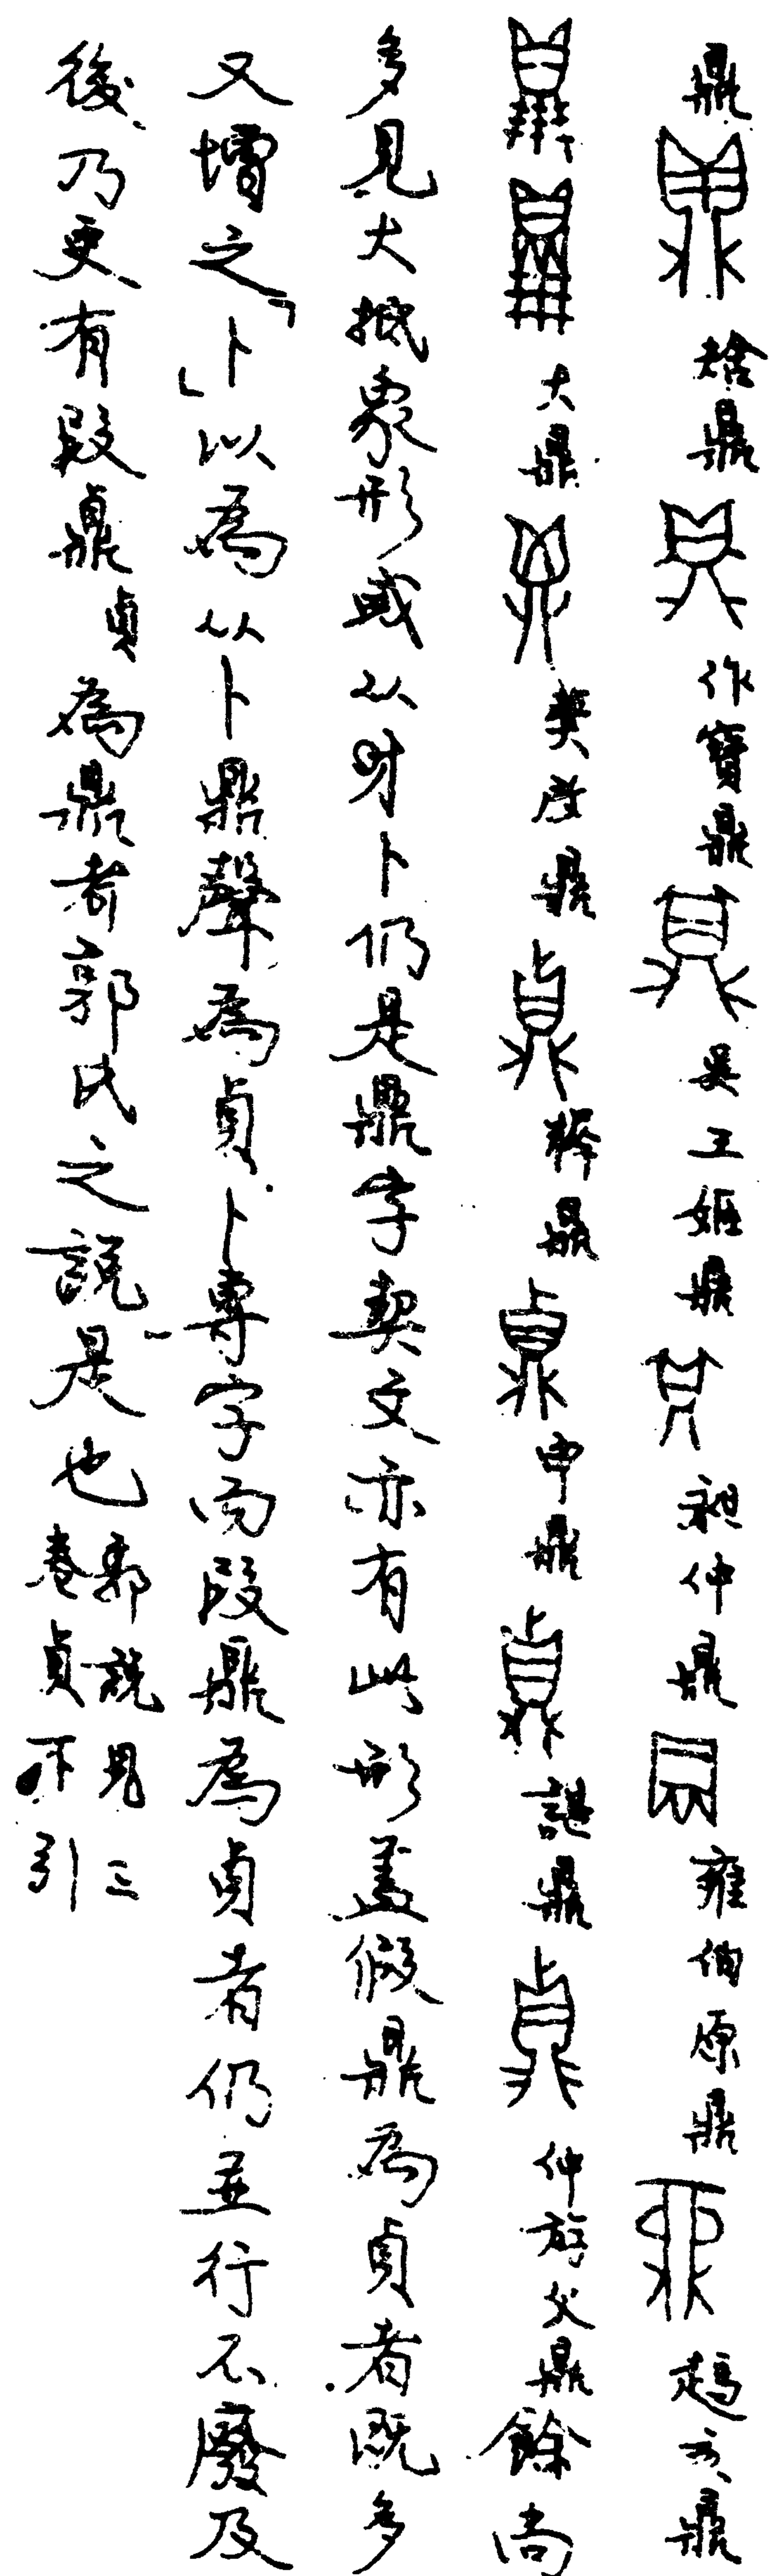 鼎 䚄鼎 作寶鼎 吳王姬鼎 昶仲鼎 雍伯原鼎 趞亥鼎
大鼎 樊君鼎 鼎 申鼎 諶鼎 仲斿父鼎餘尚
多見大抵象形或从卜仍是鼎字契文亦有此形蓋假鼎為貞者既多
又增之「卜」以為从卜鼎聲為貞卜專字而叚鼎為貞者仍並行不廢及
後乃更有叚鼎貞為鼎者郭氏之說是也郭說見三卷貞下引